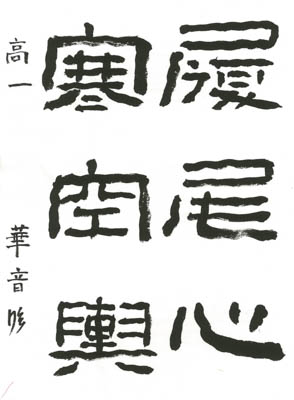 履尾心
寒空輿
高一 華音